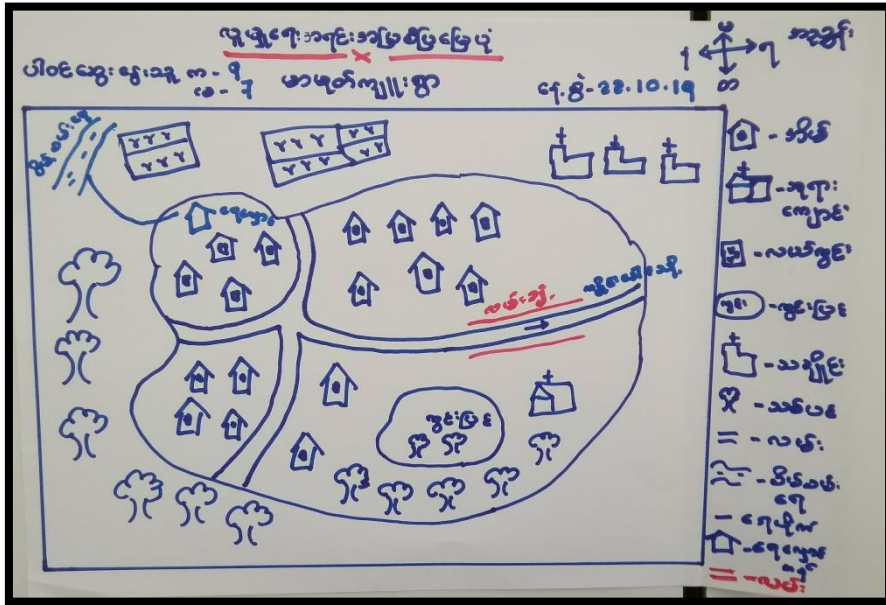 လူမှုရေးအရင်းအမြစ်ပြမြေပုံ
ပါဝင်ဆွေးနွေးသူ က - ၅
မ - 7
မာမုတ်ကျူးရွာ
နေ့စွဲ - 22.10.19
အညွှန်း
စိမ့်စမ်းရေ
ရေလှောင်
လမ်းခွဲ
ကွင်းပြင်
- အိမ်
- ဘုရား
ကျောင်း
- လယ်ကွင်း
ကွင်း - ကွင်းပြင်
- သချိုင်း
- သစ်ပင်
- လမ်း
- စိမ့်စမ်း
ရေ
- ရေပိုက်
- ရေလှောင်
ကန်
- လမ်း